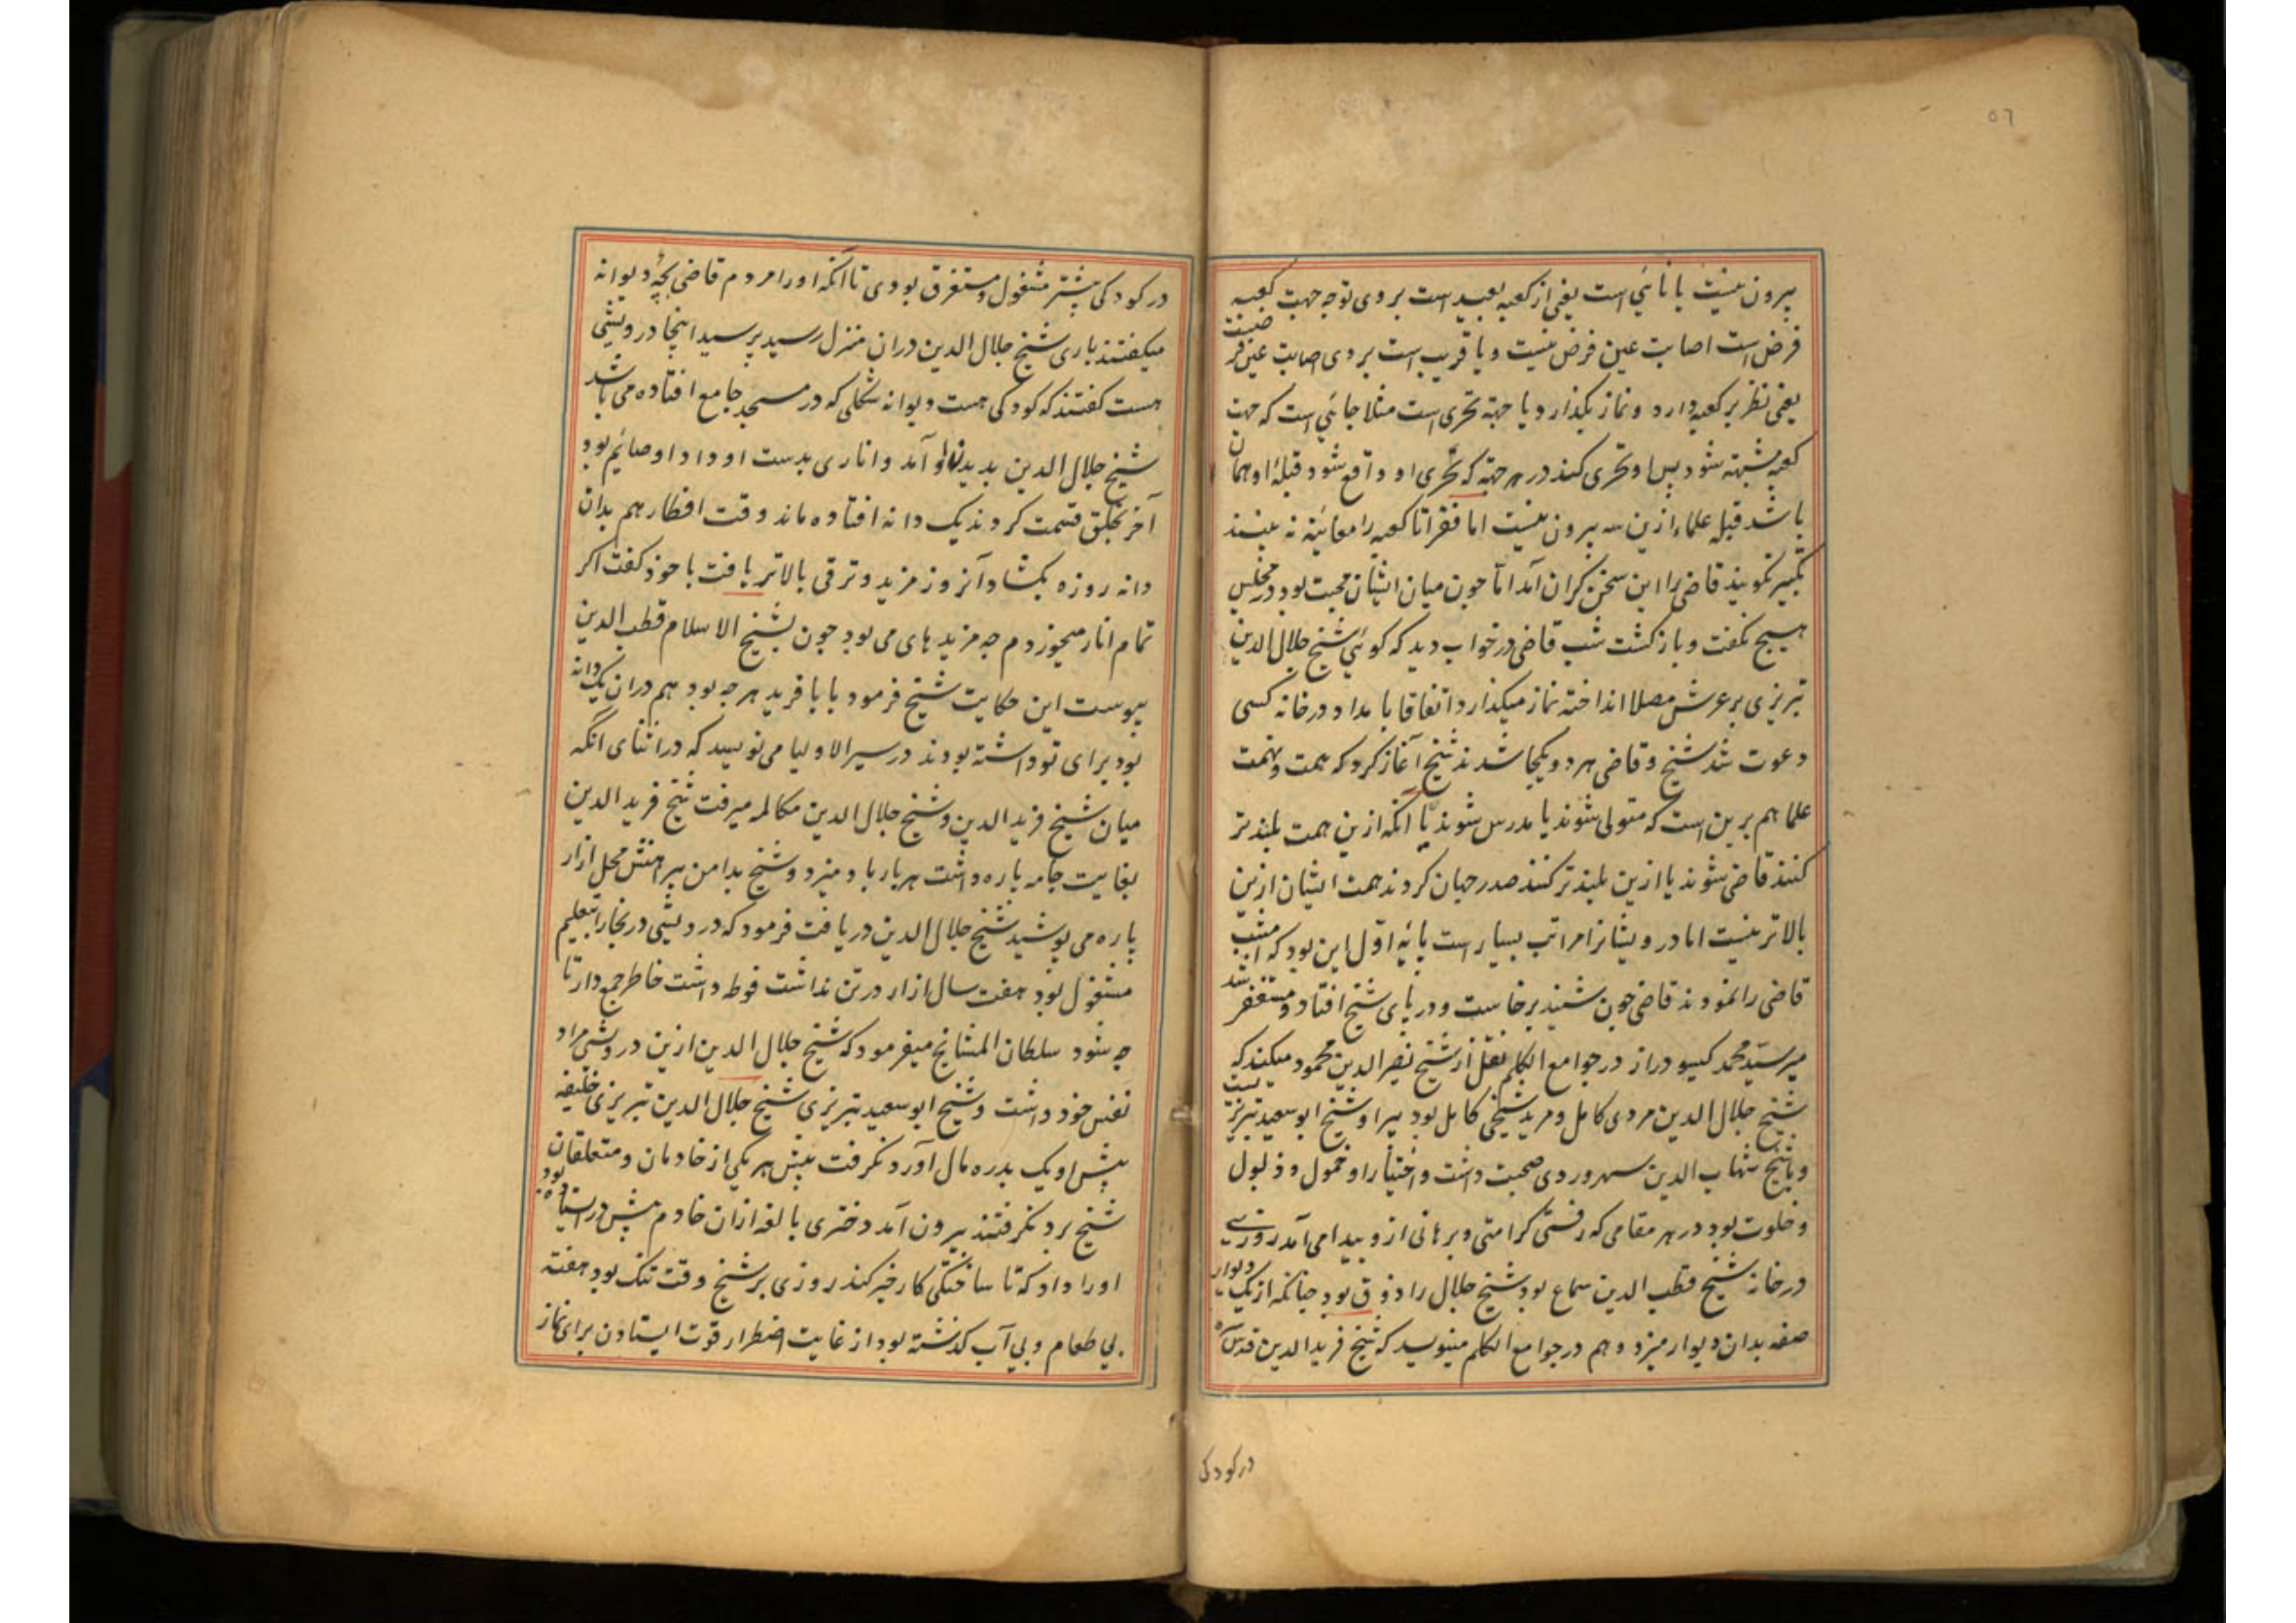 ٥٦
بیرون نیست یا نائی است یعنی از کعبه بعید است بروی توجه جهت کعبه
فرض است اصابت عین فرض نیست و یا قریب است بروی اصابت عین فر
ضیت
یعنی نظر بر کعبه دارد و نماز بکذارد یا جهة تحری است مثلا جائی است که جهت
کعبه مشتبه شود پس او تحری کند در هر جهة که تحری او واقع شود قبلۀ او همان
باشد قبله علماء ازین سه بیرون نیست اما فقرا تا کعبه را معاینه نه بینند
تکبیر نکویند قاضی را این سخن کران آمد اما چون میان ایشان محبت بود در مجلس
هیچ نکفت و بازکشت شب قاضی در خواب دید که کوئی شیخ جلال الدین
تبریزی بر عرش مصلا انداخته نماز میکذارد اتفاقا بامداد در خانه کسی
دعوت شد شیخ و قاضی هر دو یکجا شدند شیخ آغاز کرد که همت و نهمت
علما هم برین است که متولی شوند یا مدرس شوند یا آنکه ازین همت بلندتر
کنند قاضی شوند یا ازین بلندتر کنند صدر جهان کردند همت ایشان ازین
بالاتر نیست اما درویشانرا مراتب بسیار است پایۀ اول این بود که امشب
قاضی را نمودند قاضی چون شنید برخاست و در پای شیخ افتاد و مستغفر
شد
میر سید محمد کیسو دراز در جوامع الکلم نقل از شیخ نصیر الدین محمود میکند که
شیخ جلال الدین مردی کامل و مرید شیخی کامل بود پیر او شیخ ابو سعید تبریزیست
و با شیخ شهاب الدین سهروردی صحبت داشت و اختیار او خمول و ذبول
و خلوت بود در هر مقامی که رفتی کرامتی و برهانی ازو پیدا می آمد روزی
در خانه شیخ قطب الدین سماع بود شیخ جلال را ذوق بود چنانکه از یک دیوار
صفه بدان دیوار میزد و هم در جوامع الکلم مینویسد که شیخ فرید الدین قدس سره
در کودکی
در کودکی بیشتر مشغول و مستغرق بودی تا آنکه او را مردم قاضی بچۀ دیوانه
میکفتند باری شیخ جلال الدین دران منزل رسید پرسید اینجا درویشی
هست کفتند که کودکی هست دیوانه شکلی که در مسجد جامع افتاده می باشد
شیخ جلال الدین بدیدن او آمد و اناری بدست او داد او صائم بود
آخر بخلق قسمت کردند یک دانه افتاده ماند وقت افطار هم بدان
دانه روزه بکشاد آنروز مزید و ترقی بالاتر یافت با خود کفت اکر
تمام انار میخوردم چه مزیدهای می بود چون بشیخ الاسلام قطب الدین
پیوست این حکایت شیخ فرمود بابا فرید هر چه بود هم دران یک دانه
بود برای تو داشته بودند در سیر الاولیا می نویسد که در اثنای انکه
میان شیخ فرید الدین و شیخ جلال الدین مکالمه میرفت شیخ فرید الدین
بغایت جامه پاره داشت هر بار باد میزد و شیخ بدامن پیراهنش محل ازار
پاره می پوشید شیخ جلال الدین دریافت فرمود که درویشی در بخارا بتعلیم
مشغول بود هفت سال ازار در تن نداشت فوطه داشت خاطر جمع دار تا
چه شود سلطان المشائخ میفرمود که شیخ جلال الدین ازین درویش مراد
نفس خود داشت و شیخ ابو سعید تبریزی شیخ جلال الدین تبریزی خلیفه
پیش او یک بدره مال آورد نکرفت پیش هر یکی از خادمان و متعلقان
شیخ برد نکرفتند بیرون آمد دختری بالغه ازان خادم پیش در استاده
بود
او را داد که تا ساختکی کار خیر کند روزی بر شیخ وقت تنک بود هفته
بی طعام و بی آب کذشته بود از غایت اضطرار قوت ایستادن برای نماز